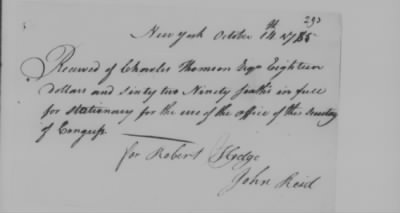 293
New York October 14th 1785
Received of Charles Thomson Esqr. Eighteen
dollars and sixty two Ninetyths in full
for stationary for the use of the office of the Secretary
of Congress.
for Robert Hodge
John Reid